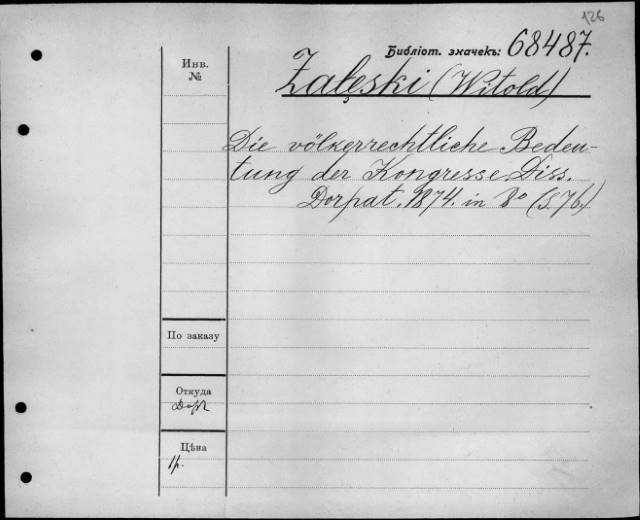 126
Библіот. значекъ: 68487.
Инв.
№
Załęski (Witold)
Die völkerrechtliche Bedeu-
tung der Kongresse. Diss.
Dorpat. 1874. in 8° (S. 76.)
По заказу
Откуда
Цѣна
1р.